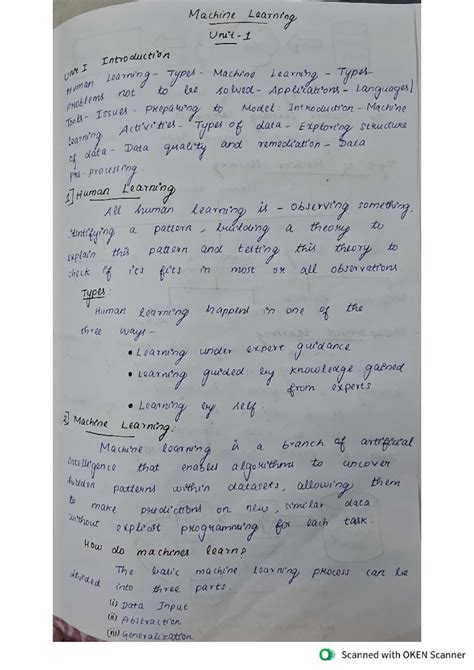 Machine Learning
Unit-1
Unit I Introduction
Human Learning - Types - Machine Learning - Types -
problems not to be solved - Applications - Languages/
Tools - Issues. preparing to Model Introduction - Machine
learning Activities - Types of data - Exploring structure
of data - Data quality and remediation - Data
pre-processing
1] Human Learning
All human learning is - observing something,
identifying a pattern, building a theory to
explain this pattern and testing this theory to
check if its fits in most or all observations.
Types:
Human learning happens in one of the
three ways -
• Learning under expert guidance
• Learning guided by knowledge gained
from experts
• Learning by self.
2] Machine Learning:
Machine learning is a branch of artificial
intelligence that enables algorithms to uncover
hidden patterns within datasets, allowing them
to make predictions on new, similar data
without explicit programming for each task.
How do machines learn?
The basic machine learning process can be
divided into three parts.
(i) Data Input
(ii) Abstraction
(iii) Generalization
Scanned with OKEN Scanner